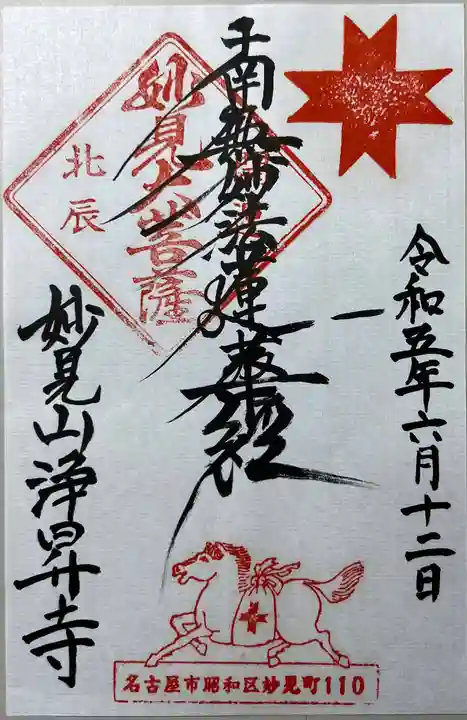 令和五年六月十二日
南無妙法蓮華経
妙見大菩薩
北辰
妙見山浄昇寺
名古屋市昭和区妙見町110